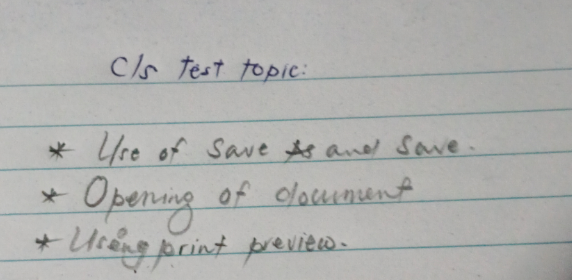 C/s Test topic:
* Use of Save As and Save.
* Opening of document
* Using print preview.